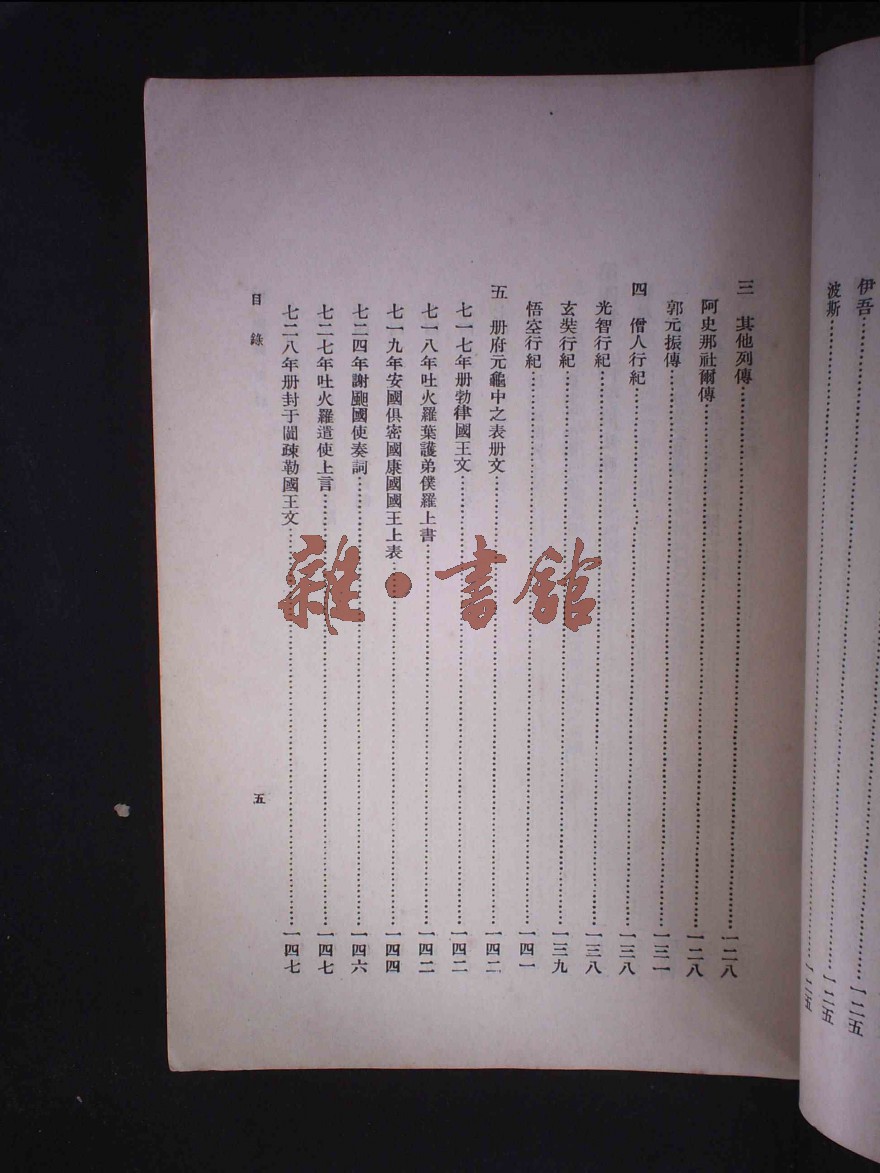 伊吾……一二五
波斯……一二五
一二五
三　其他列傳……一二八
阿史那社爾傳……一二八
郭元振傳……一三一
四　僧人行紀……一三八
光智行紀……一三八
玄奘行紀……一三九
悟空行紀……一四一
五　册府元龜中之表册文……一四二
七一七年册勃律國王文……一四二
七一八年吐火羅葉護弟僕羅上書……一四二
七一九年安國俱密國康國國王上表……一四四
七二四年謝䫻國使奏詞……一四六
七二七年吐火羅遣使上言……一四七
七二八年册封于闐疎勒國王文……一四七
目錄　五
雜·書館